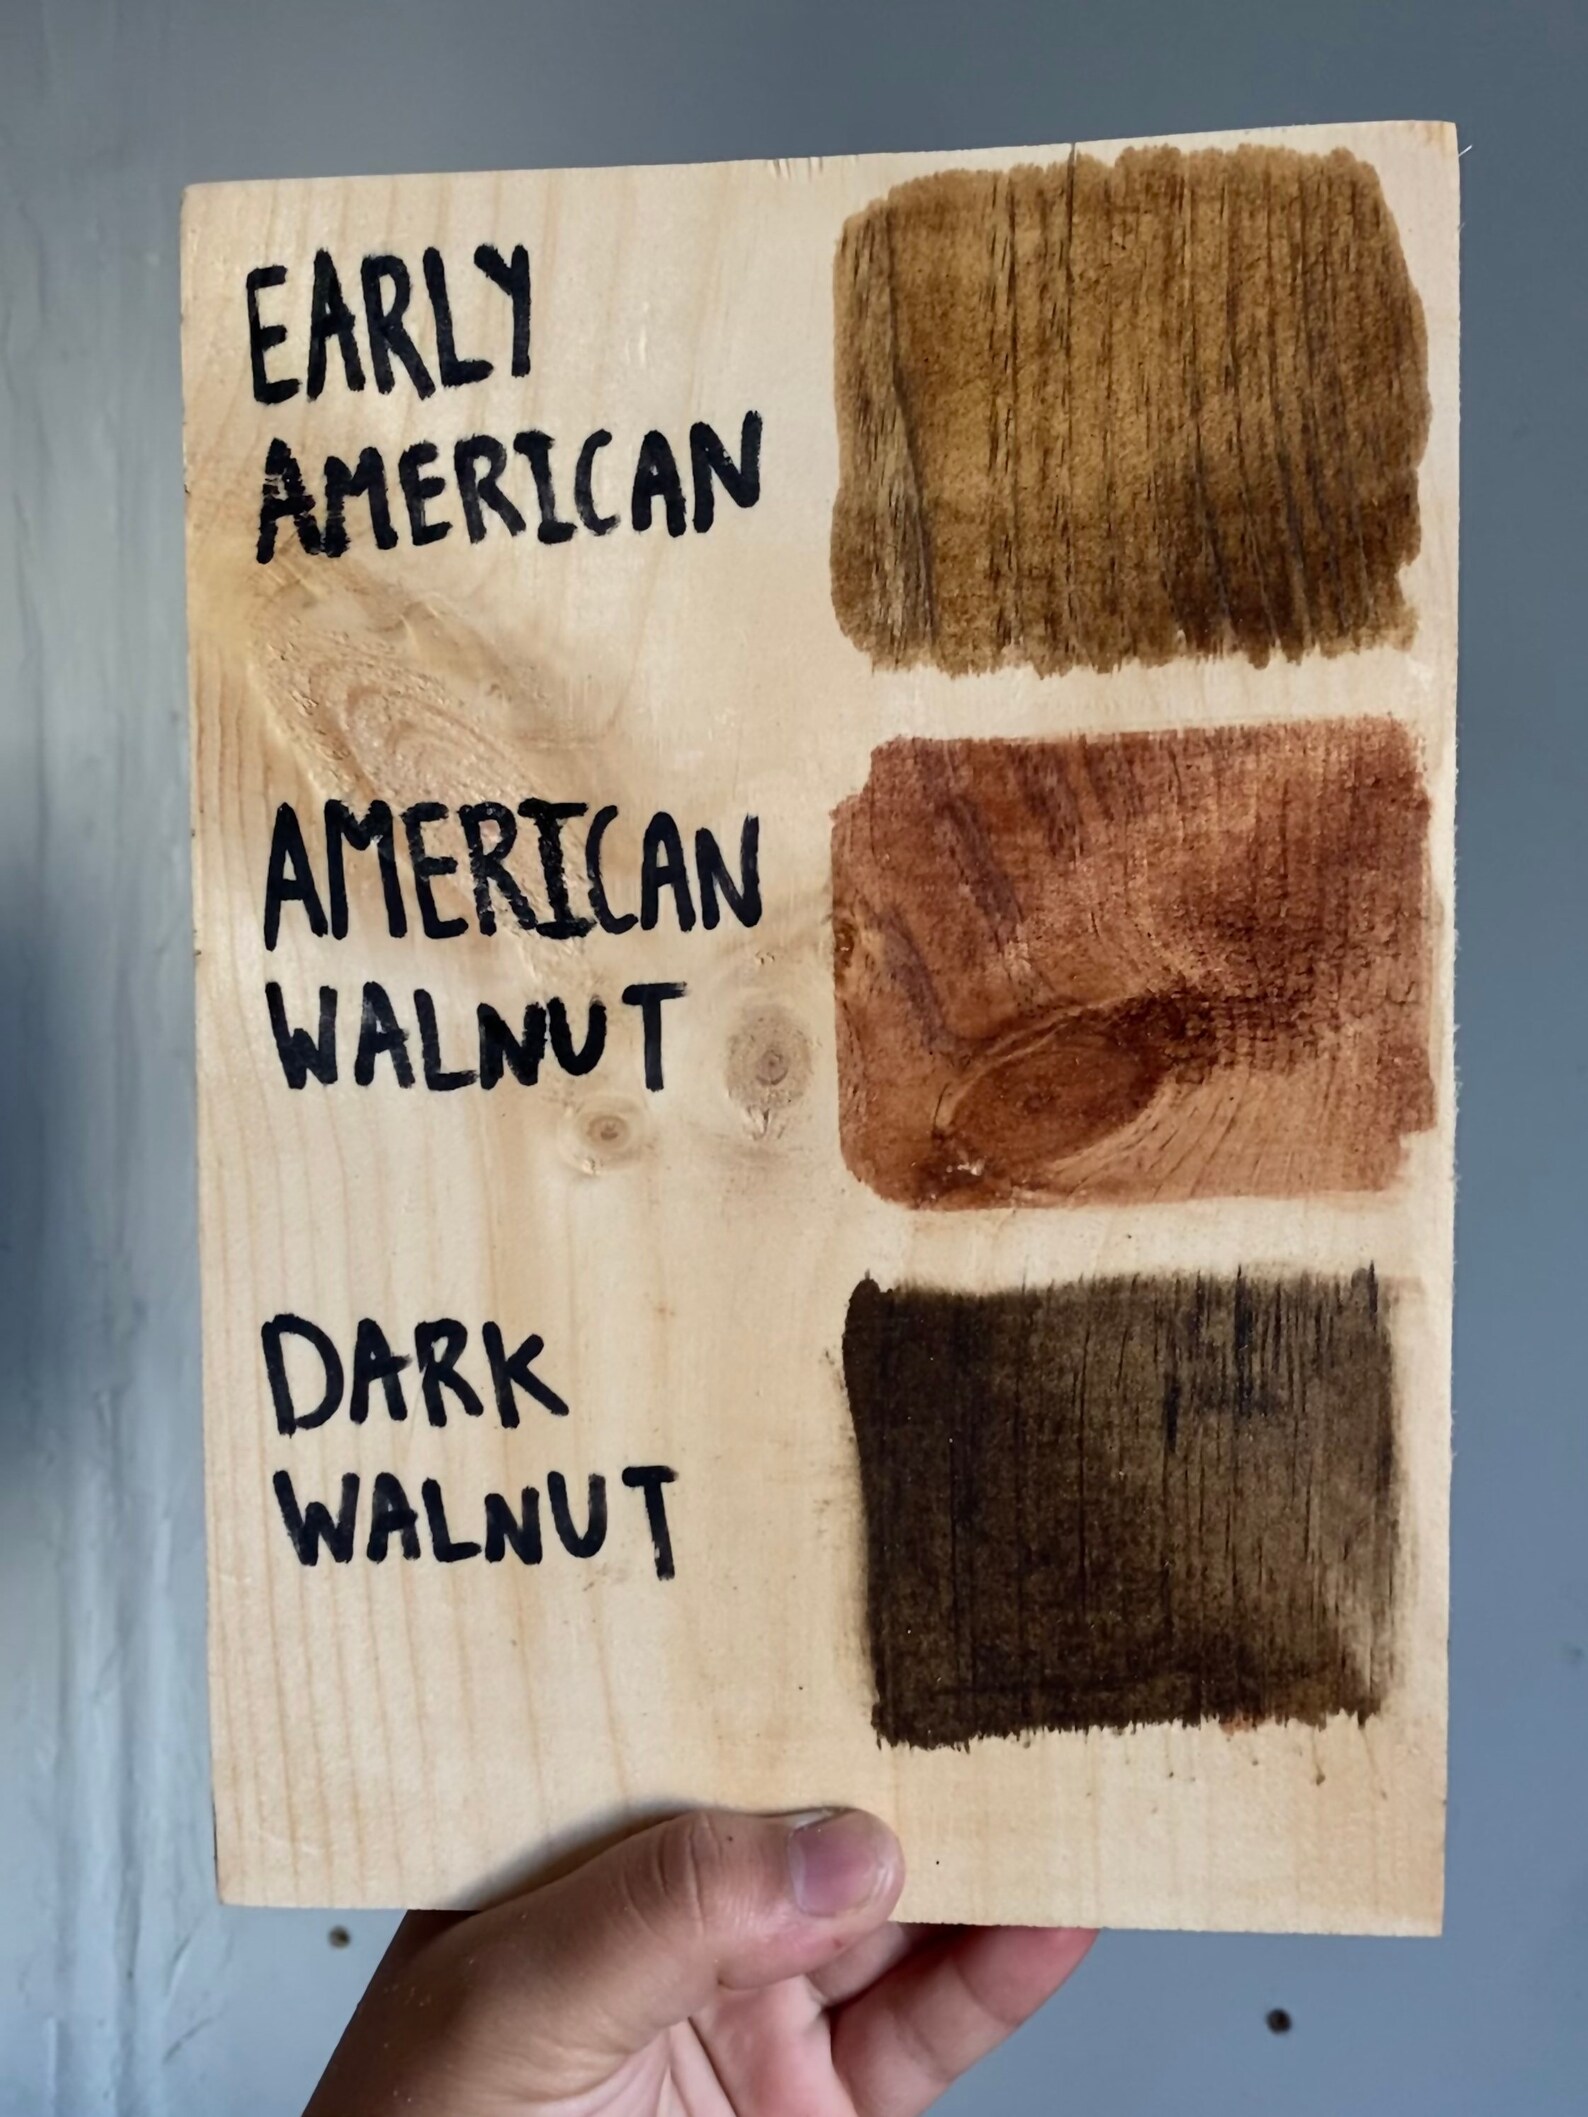 EARLY
AMERICAN
AMERICAN
WALNUT
DARK
WALNUT